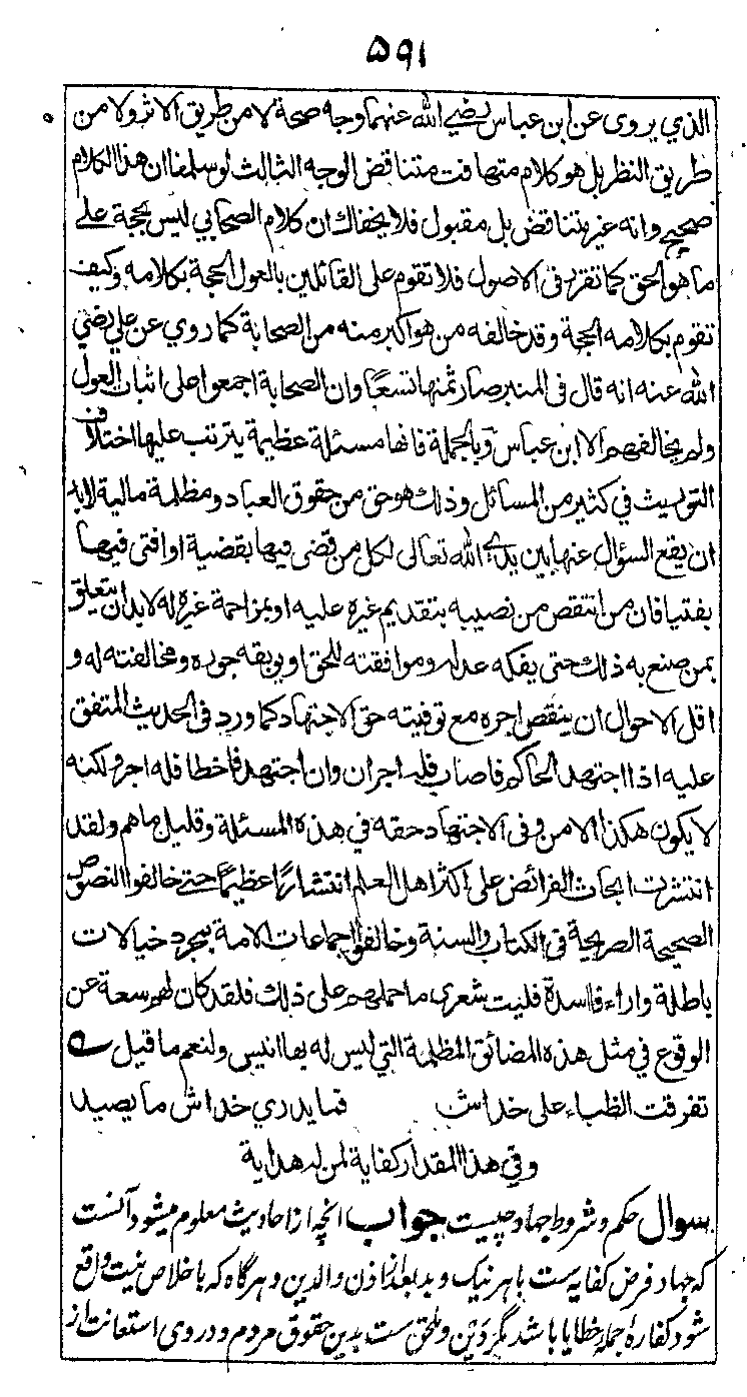 ۵۹۱
الذي يروى عن ابن عباس رضي الله عنهما وجه صحة لا من طريق الاثر ولا من
طريق النظر بل هو كلام متهافت متناقض الوجه الثالث لو سلمنا ان هذا الكلام
صحيح وانه غير متناقض بل مقبول فلا يخفاك ان كلام الصحابي ليس بحجة على
ما هو الحق كما تقرر فى الاصول فلا تقوم على القائلين بالعول الحجة بكلامه وكيف
تقوم بكلامه الحجة وقد خالفه من هو اكبر منه من الصحابة كما روي عن علي رضي
الله عنه انه قال فى المنبر صار ثمنها تسعا وان الصحابة اجمعوا على اثبات العول
ولم يخالفهم الا ابن عباس وبالجملة فانها مسئلة عظيمة يترتب عليها اختلاف
التوريث في كثير من المسائل وذلك هو حق من حقوق العباد ومظلمة مالية لابد
ان يقع السؤال عنها بين يدي الله تعالى لكل من قضى فيها بقضية او افتى فيها
بفتيا فان من انتقص من نصيبه بتقديم غيره عليه او بمزاحمة غيره له لا بد ان يتعلق
بمن صنع به ذلك حتى يفكه عدله وموافقته للحق او يوبقه جوره ومخالفته له و
اقل الاحوال ان ينقص اجره مع توفيته حق الاجتهاد كما ورد فى الحديث المتفق
عليه اذا اجتهد الحاكم فاصاب فله اجران وان اجتهد فاخطا فله اجر ولكنه
لا يكون هكذا الا من وفى الاجتهاد حقه في هذه المسئلة وقليل ما هم ولقد
انتشرت ابحاث الفرائض على اكثر اهل العلم انتشارًا عظيمًا حتى خالفوا النصوص
الصحيحة الصريحة فى الكتاب والسنة وخالفوا اجماعات الامة بمجرد خيالات
باطلة واراء فاسدة فليت شعري ما حملهم على ذلك فلقد كان لهم سعة عن
الوقوع في مثل هذه المضائق المظلمة التي ليس له بها انيس ولنعم ما قيل
تفرقت الظباء على خداش فما يدري خداش ما يصيد
وفي هذا المقدار كفاية لمن له هداية
سوال حکم و شروط جهاد چیست جواب انچه از احادیث معلوم میشود آنست
که جهاد فرض کفایه ست با هر نیک و بد بعد از اذن والدین و هرگاه که با خلاص نیت واقع
شود کفارهٔ جمله خطایا باشد مگر دَین و ملحق ست بدین حقوق مردم و در وی استعانت از